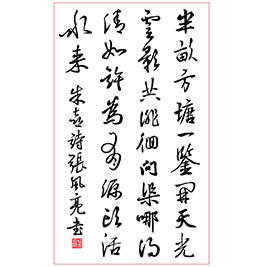 半畝方塘一鑒開天光
雲影共徘徊問渠哪得
清如許為有源頭活
水来 朱熹詩張風亮書